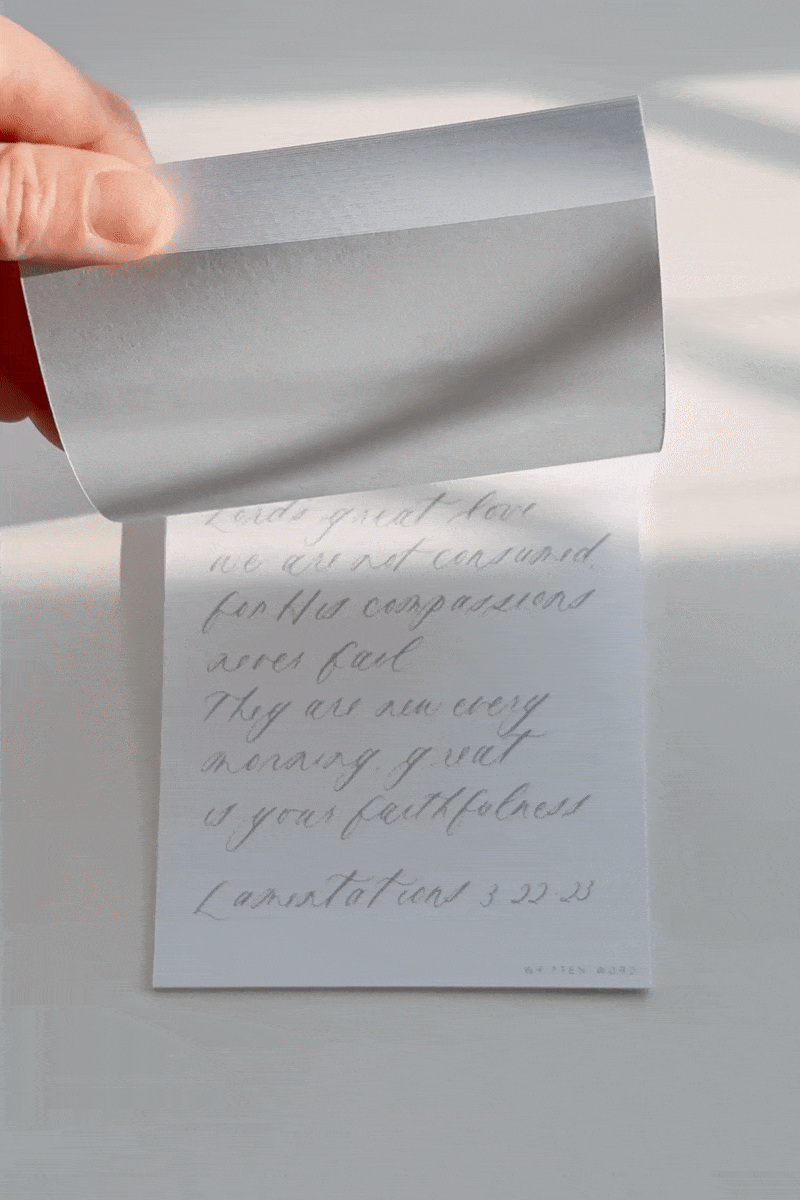 Lord's great love
we are not consumed,
for His compassions
never fail
They are new every
morning. great
is your faithfulness
Lamentations 3 22-23
WRITTEN WORD